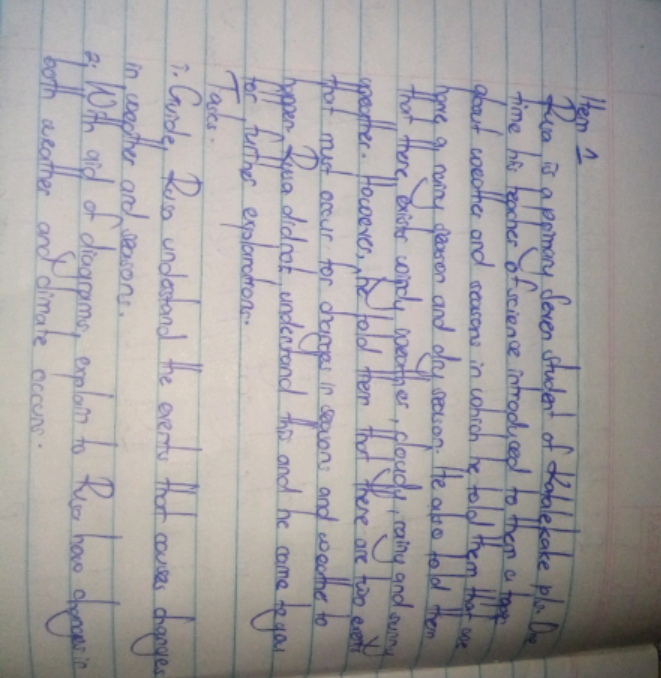 Item 1
Risa is a primary Seven student of Kabalekake p/s. One
time his teacher of science introduced to them a topic
about weather and seasons in which he told them that we
have a rainy season and dry season. He also told them
that there, exists windy weather, cloudy, rainy and sunny
weather. However, he told them that there are two events
that must occur for changes in seasons and weather to
happen. Risa didnot understand this and he came to you
for further explanations.
Tasks.
1. Guide, Risa understand the events that causes changes
in weather and seasons.
2. With aid of diagrams, explain to Risa how changes in
both weather and climate occurs.